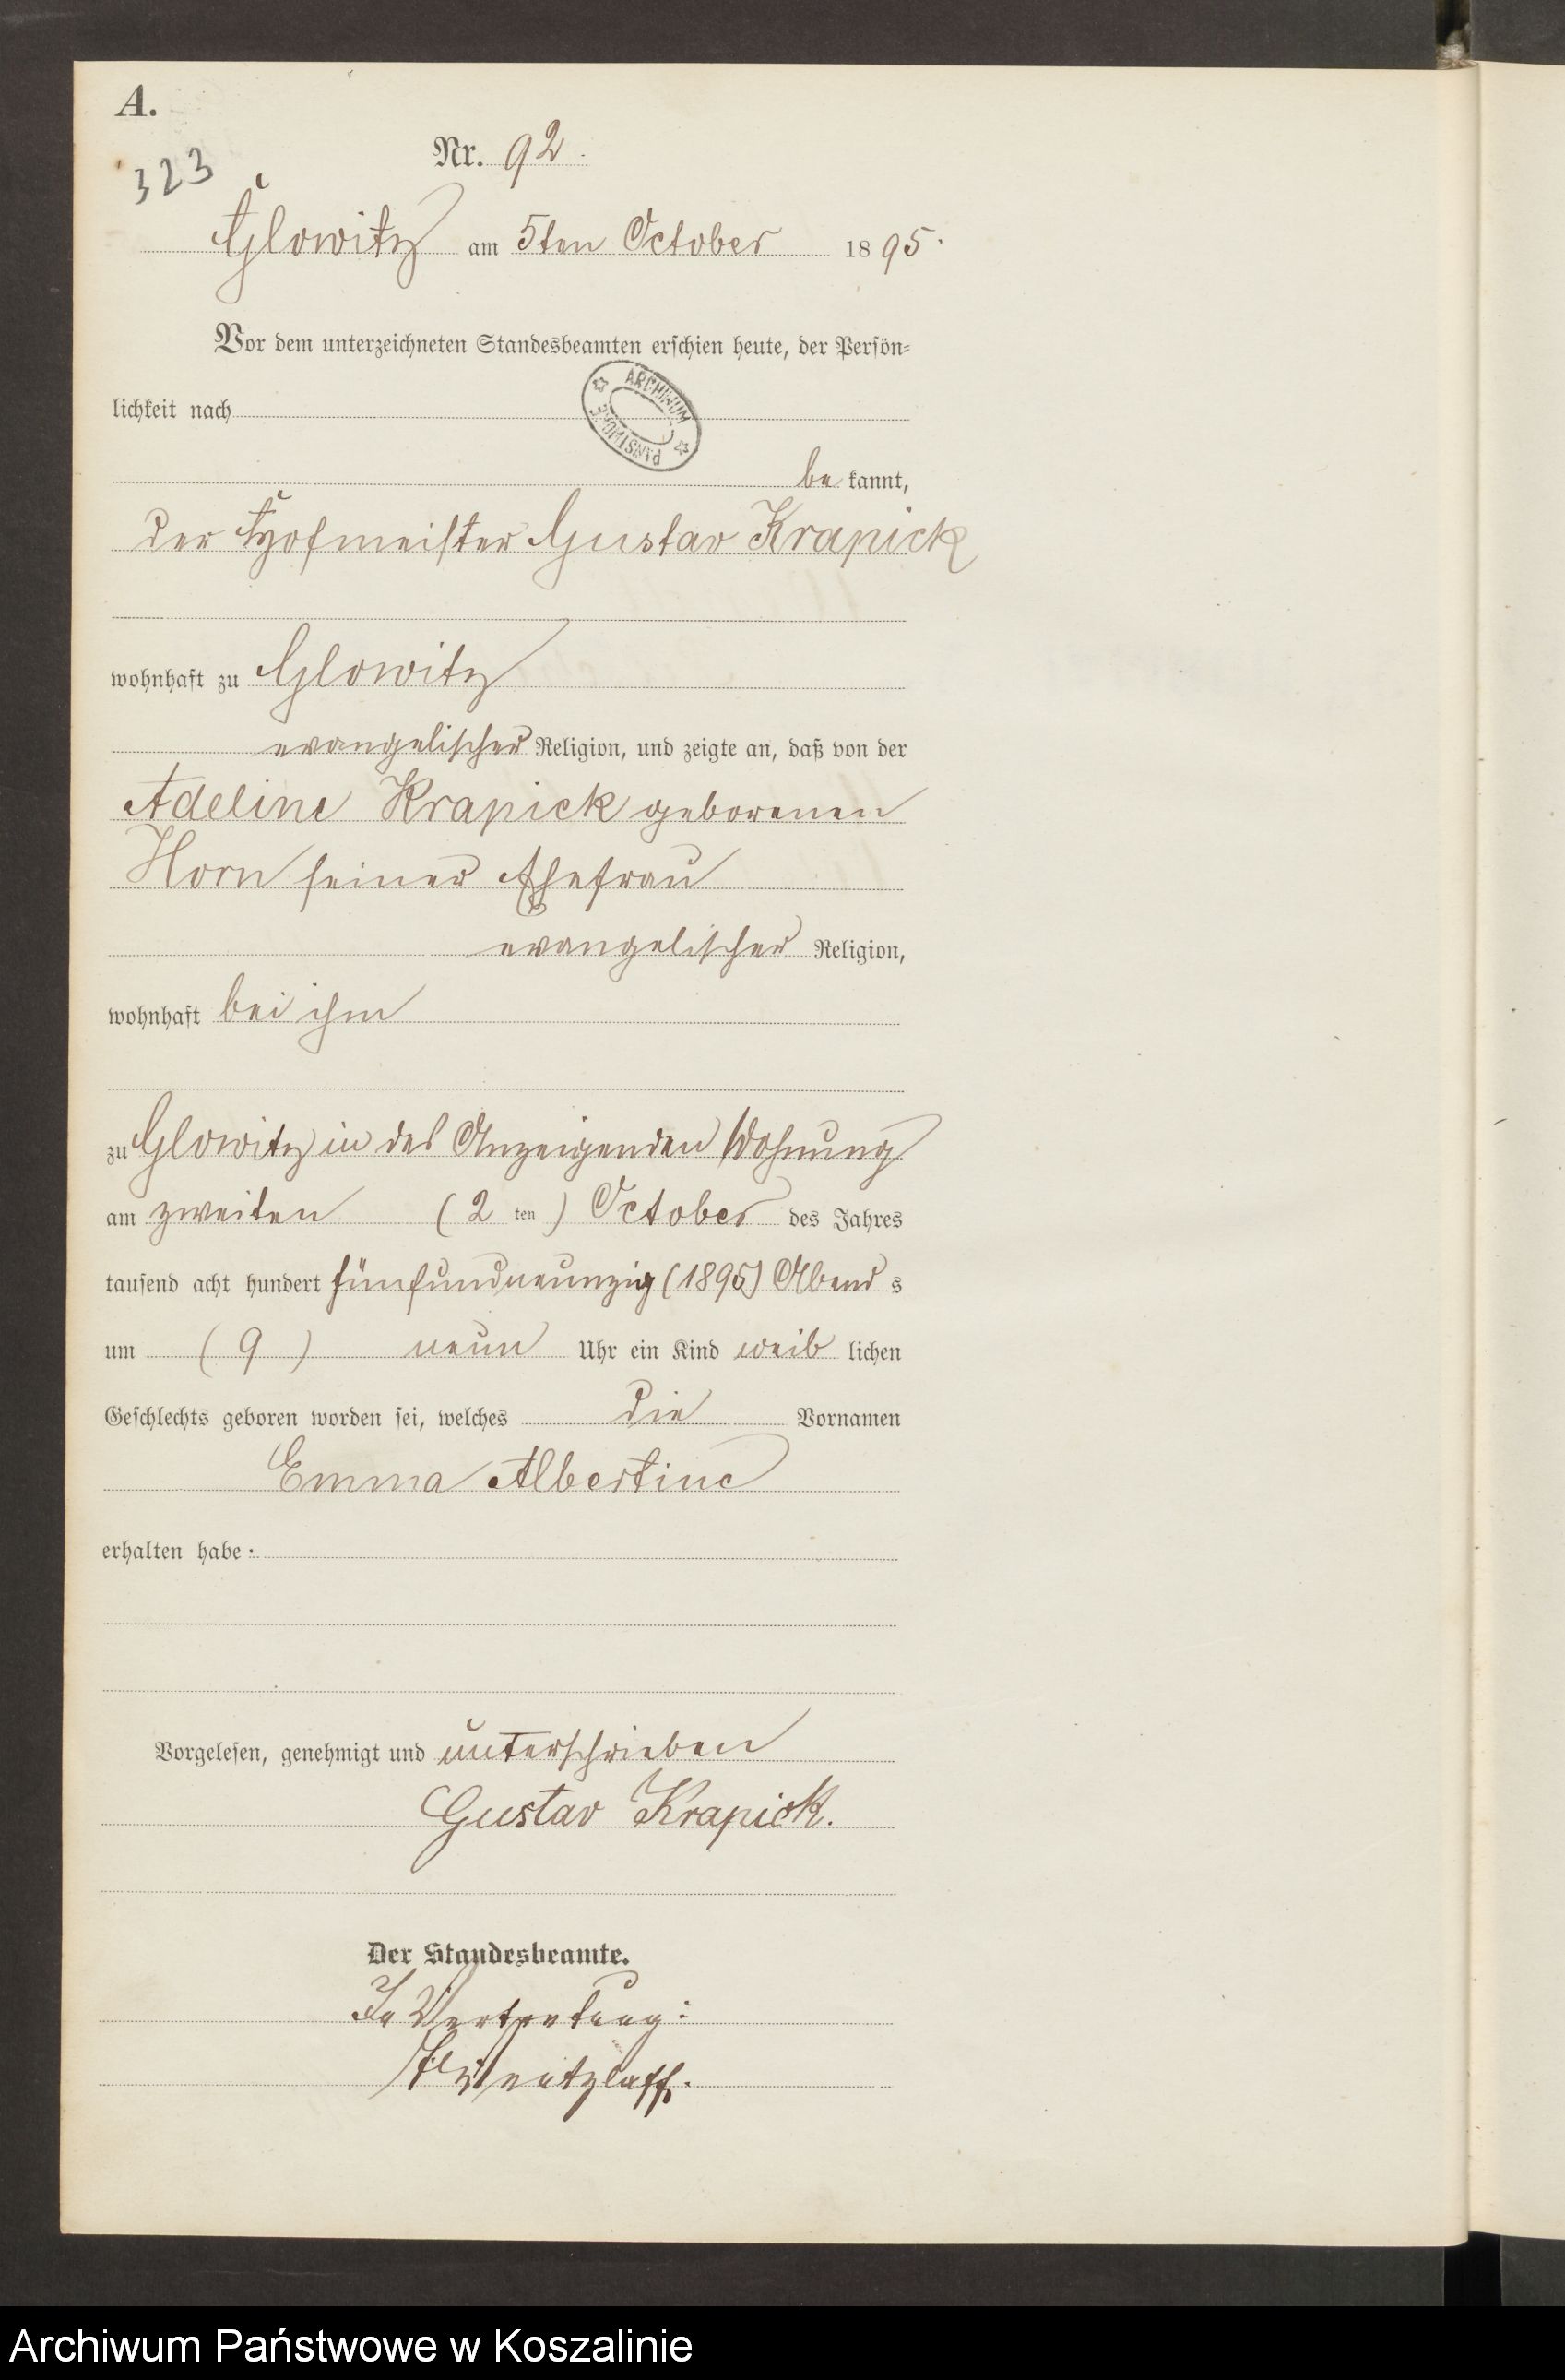 A.
323
Nr. 92.
Glowitz am 5ten October 1895.
Vor dem unterzeichneten Standesbeamten erschien heute, der Persön-
lichkeit nach
ARCHIWUM PAŃSTWOWE
be kannt,
der Hofmeister Gustav Krapick
wohnhaft zu Glowitz
evangelischer Religion, und zeigte an, daß von der
Adeline Krapick geborenen
Horn seiner Ehefrau
evangelischer Religion,
wohnhaft bei ihm
zu Glowitz in des Anzeigenden Wohnung
am zweiten (2 ten) October des Jahres
tausend acht hundert fünfundneunzig (1895) Abend s
um (9) neun Uhr ein Kind weib lichen
Geschlechts geboren worden sei, welches die Vornamen
Emma Albertine
erhalten habe.
Vorgelesen, genehmigt und unterschrieben
Gustav Krapick.
Der Standesbeamte.
In Vertretung:
Wentzlaff.
Archiwum Państwowe w Koszalinie